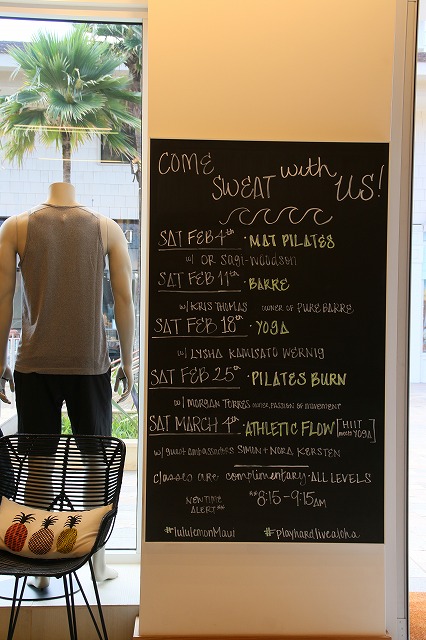 COME
SWEAT with
US!
SAT FEB 4th · MAT PILATES
w/ OR SAGI-WOODSON
SAT FEB 11th · BARRE
w/ KRIS THOMAS OWNER OF PURE BARRE
SAT FEB 18th · YOGA
w/ LYSHA KAMISATO WERNIG
SAT FEB 25th · PILATES BURN
w/ MORGAN TORRES OWNER, PASSION OF MOVEMENT
SAT MARCH 4th · ATHLETIC FLOW [HIIT meets YOGA]
w/ guest ambassadors SIMON + NORA KERSTEN
Classes are complimentary · ALL LEVELS
NEW TIME
ALERT 8:15 - 9:15AM
#lululemonMaui #playhardlivealoha